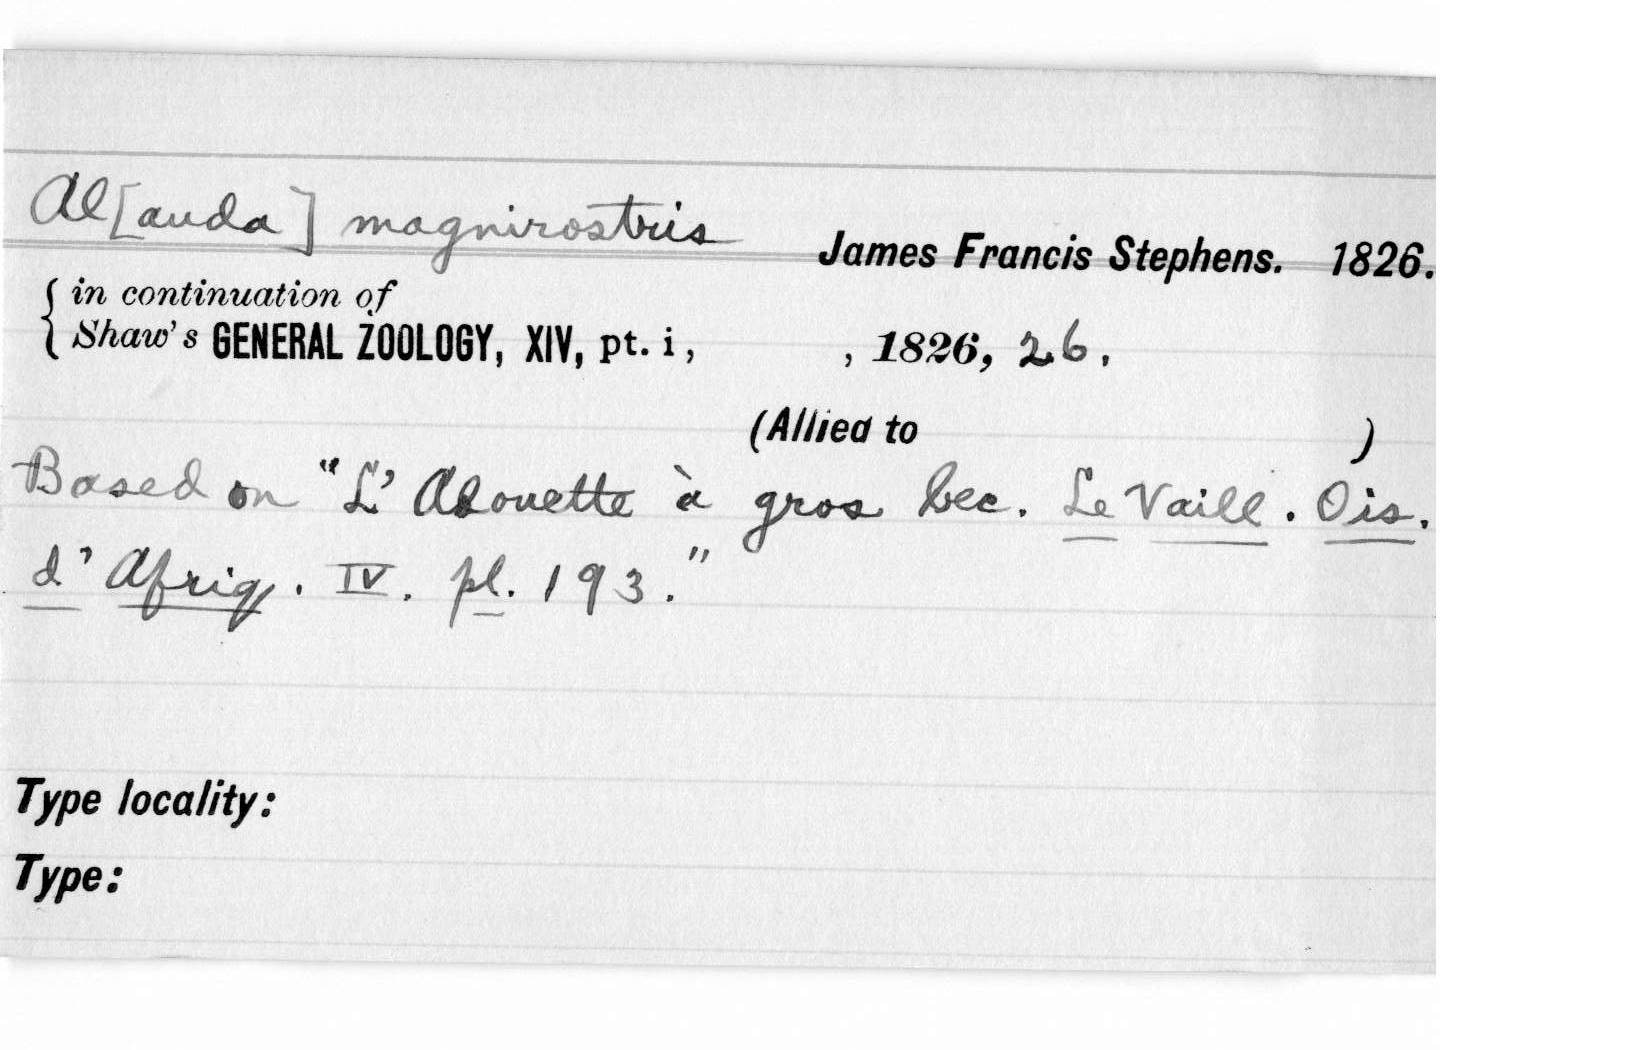 Al[auda] magnirostris James Francis Stephens. 1826.
in continuation of
Shaw's GENERAL ZOOLOGY, XIV, pt. i, , 1826, 26.
(Allied to )
Based on "L' Alouette à gros bec. Le Vaill. Ois.
d' Afriq. IV. pl. 193."
Type locality:
Type: